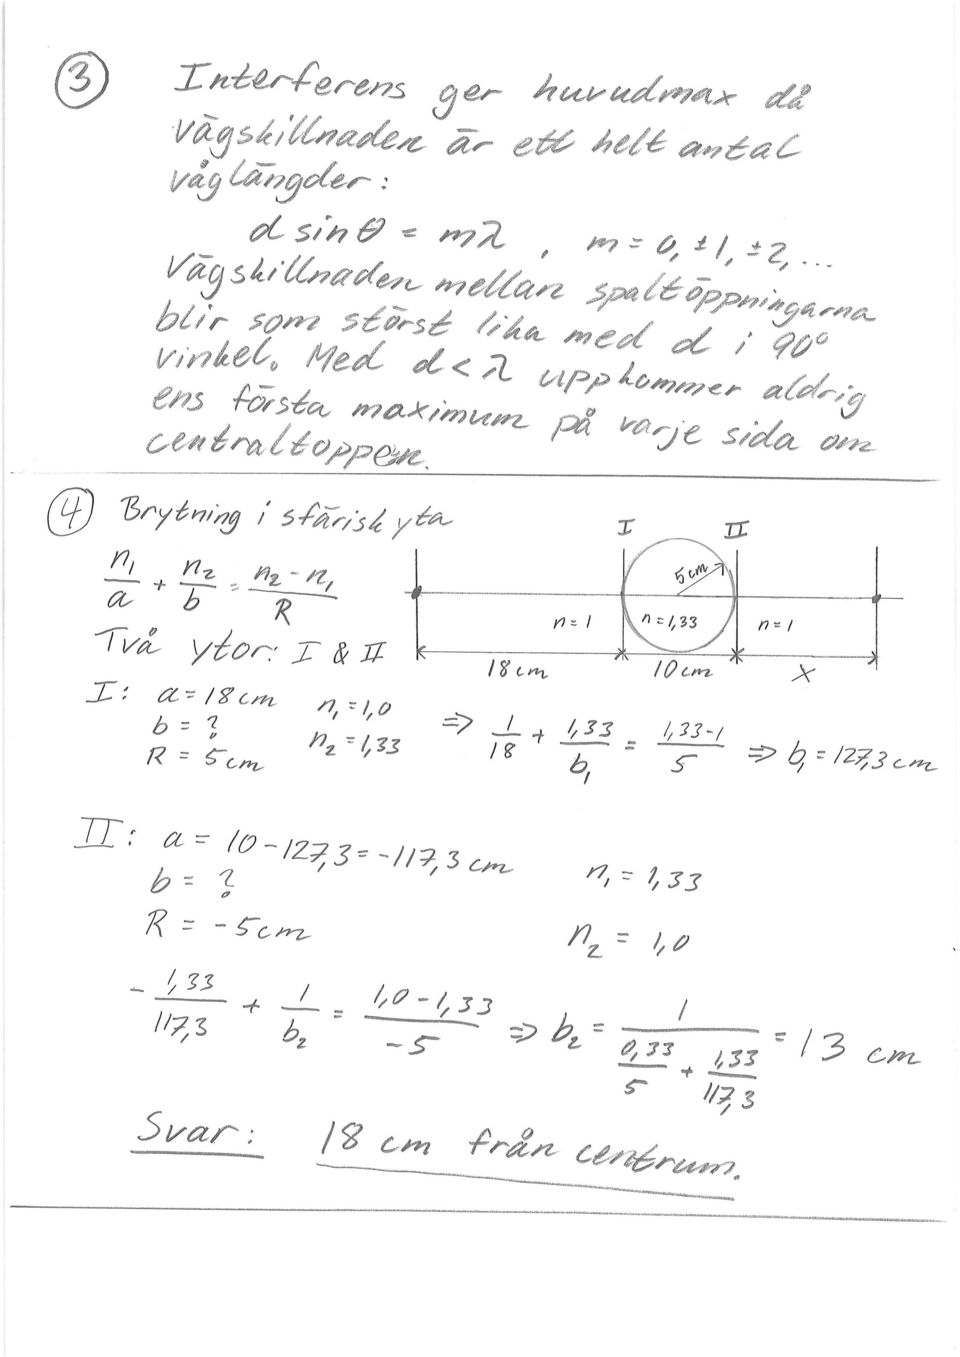 ③ Interferens ger huvudmax då
vägskillnaden är ett helt antal
våglängder:
d sin θ = mλ , m = 0, ±1, ±2, ...
Vägskillnaden mellan spaltöppningarna
blir som störst lika med d i 90°
vinkel. Med d < λ uppkommer aldrig
ens första maximum på varje sida om
centraltoppen.
④ Brytning i sfärisk yta
n₁/a + n₂/b = (n₂ - n₁)/R
Två ytor: I & II
I II
5 cm
n = 1 n = 1,33 n = 1
18 cm 10 cm x
I: a = 18 cm n₁ = 1,0
b = ? n₂ = 1,33
R = 5 cm
⇒ 1/18 + 1,33/b₁ = (1,33-1)/5 ⇒ b₁ = 127,3 cm
II: a = 10 - 127,3 = -117,3 cm n₁ = 1,33
b = ?
R = -5 cm n₂ = 1,0
- 1,33/117,3 + 1/b₂ = (1,0 - 1,33)/-5 ⇒ b₂ = 1/(0,33/5 + 1,33/117,3) = 13 cm
Svar: 18 cm från centrum.